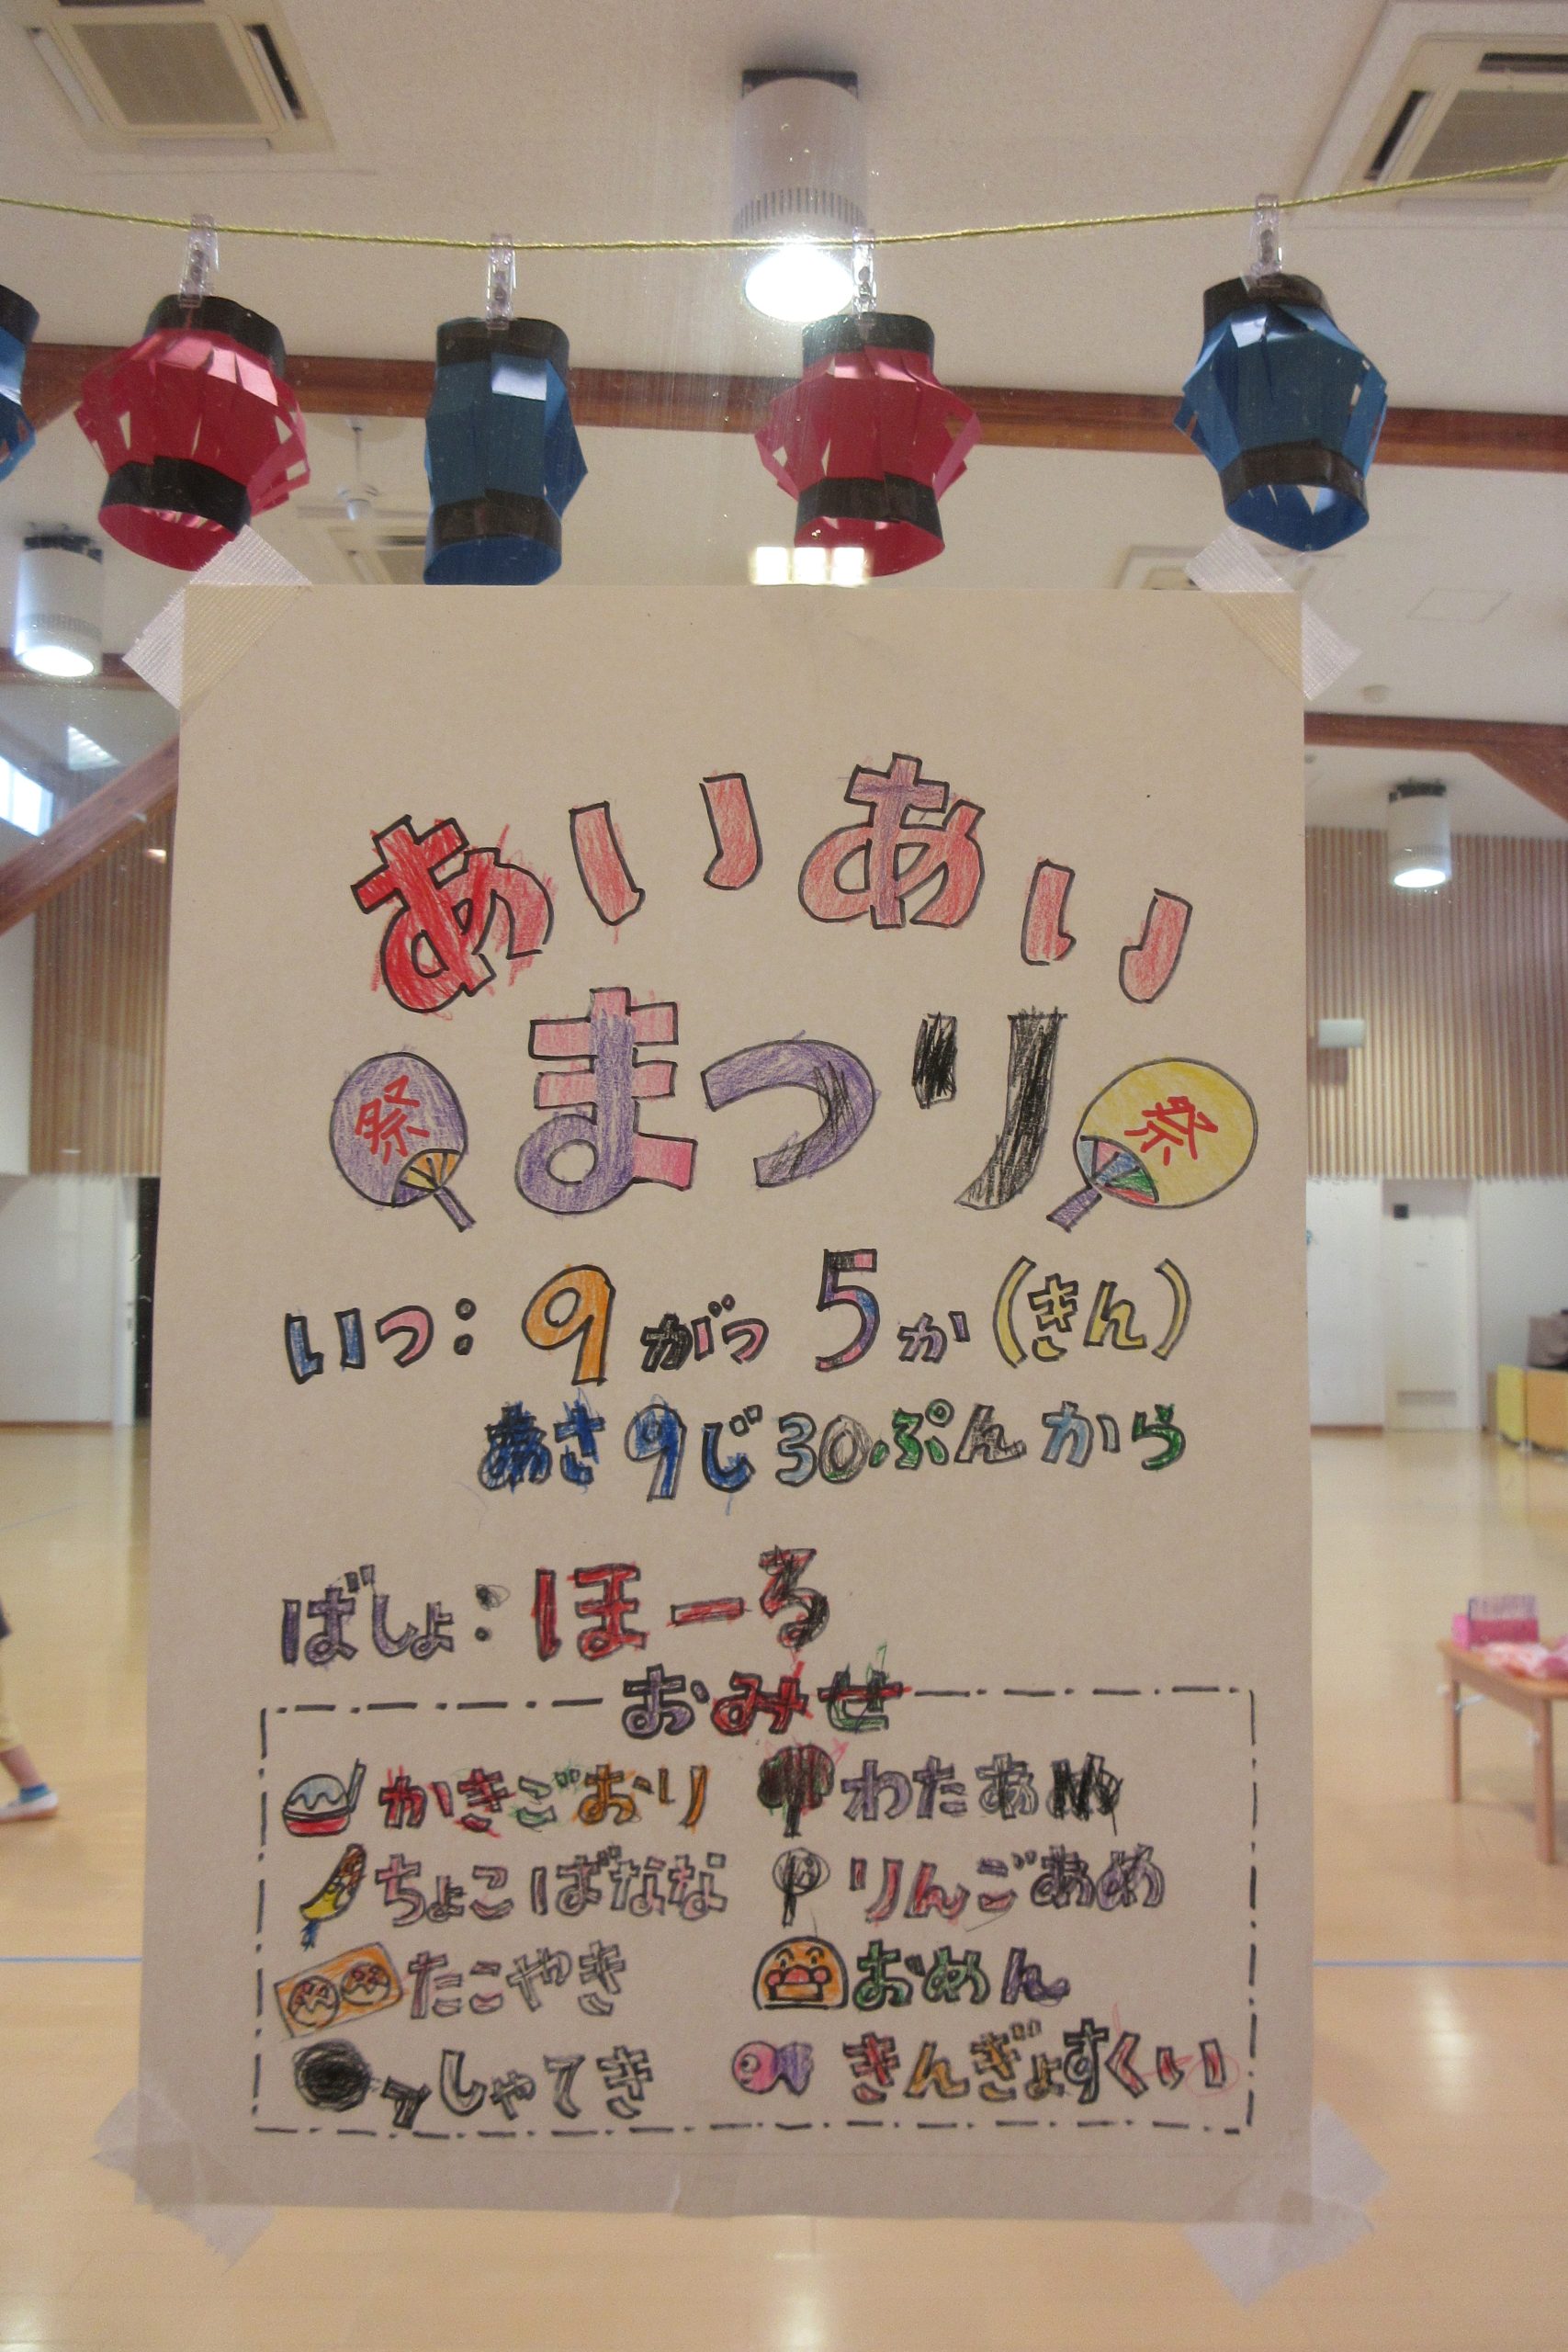 あいあい
祭 まつり 祭
いつ：9がつ5か(きん)
あさ9じ30ぷんから
ばしょ：ほーる
おみせ
かきごおり わたあめ
ちょこばなな りんごあめ
たこやき おめん
しゃてき きんぎょすくい